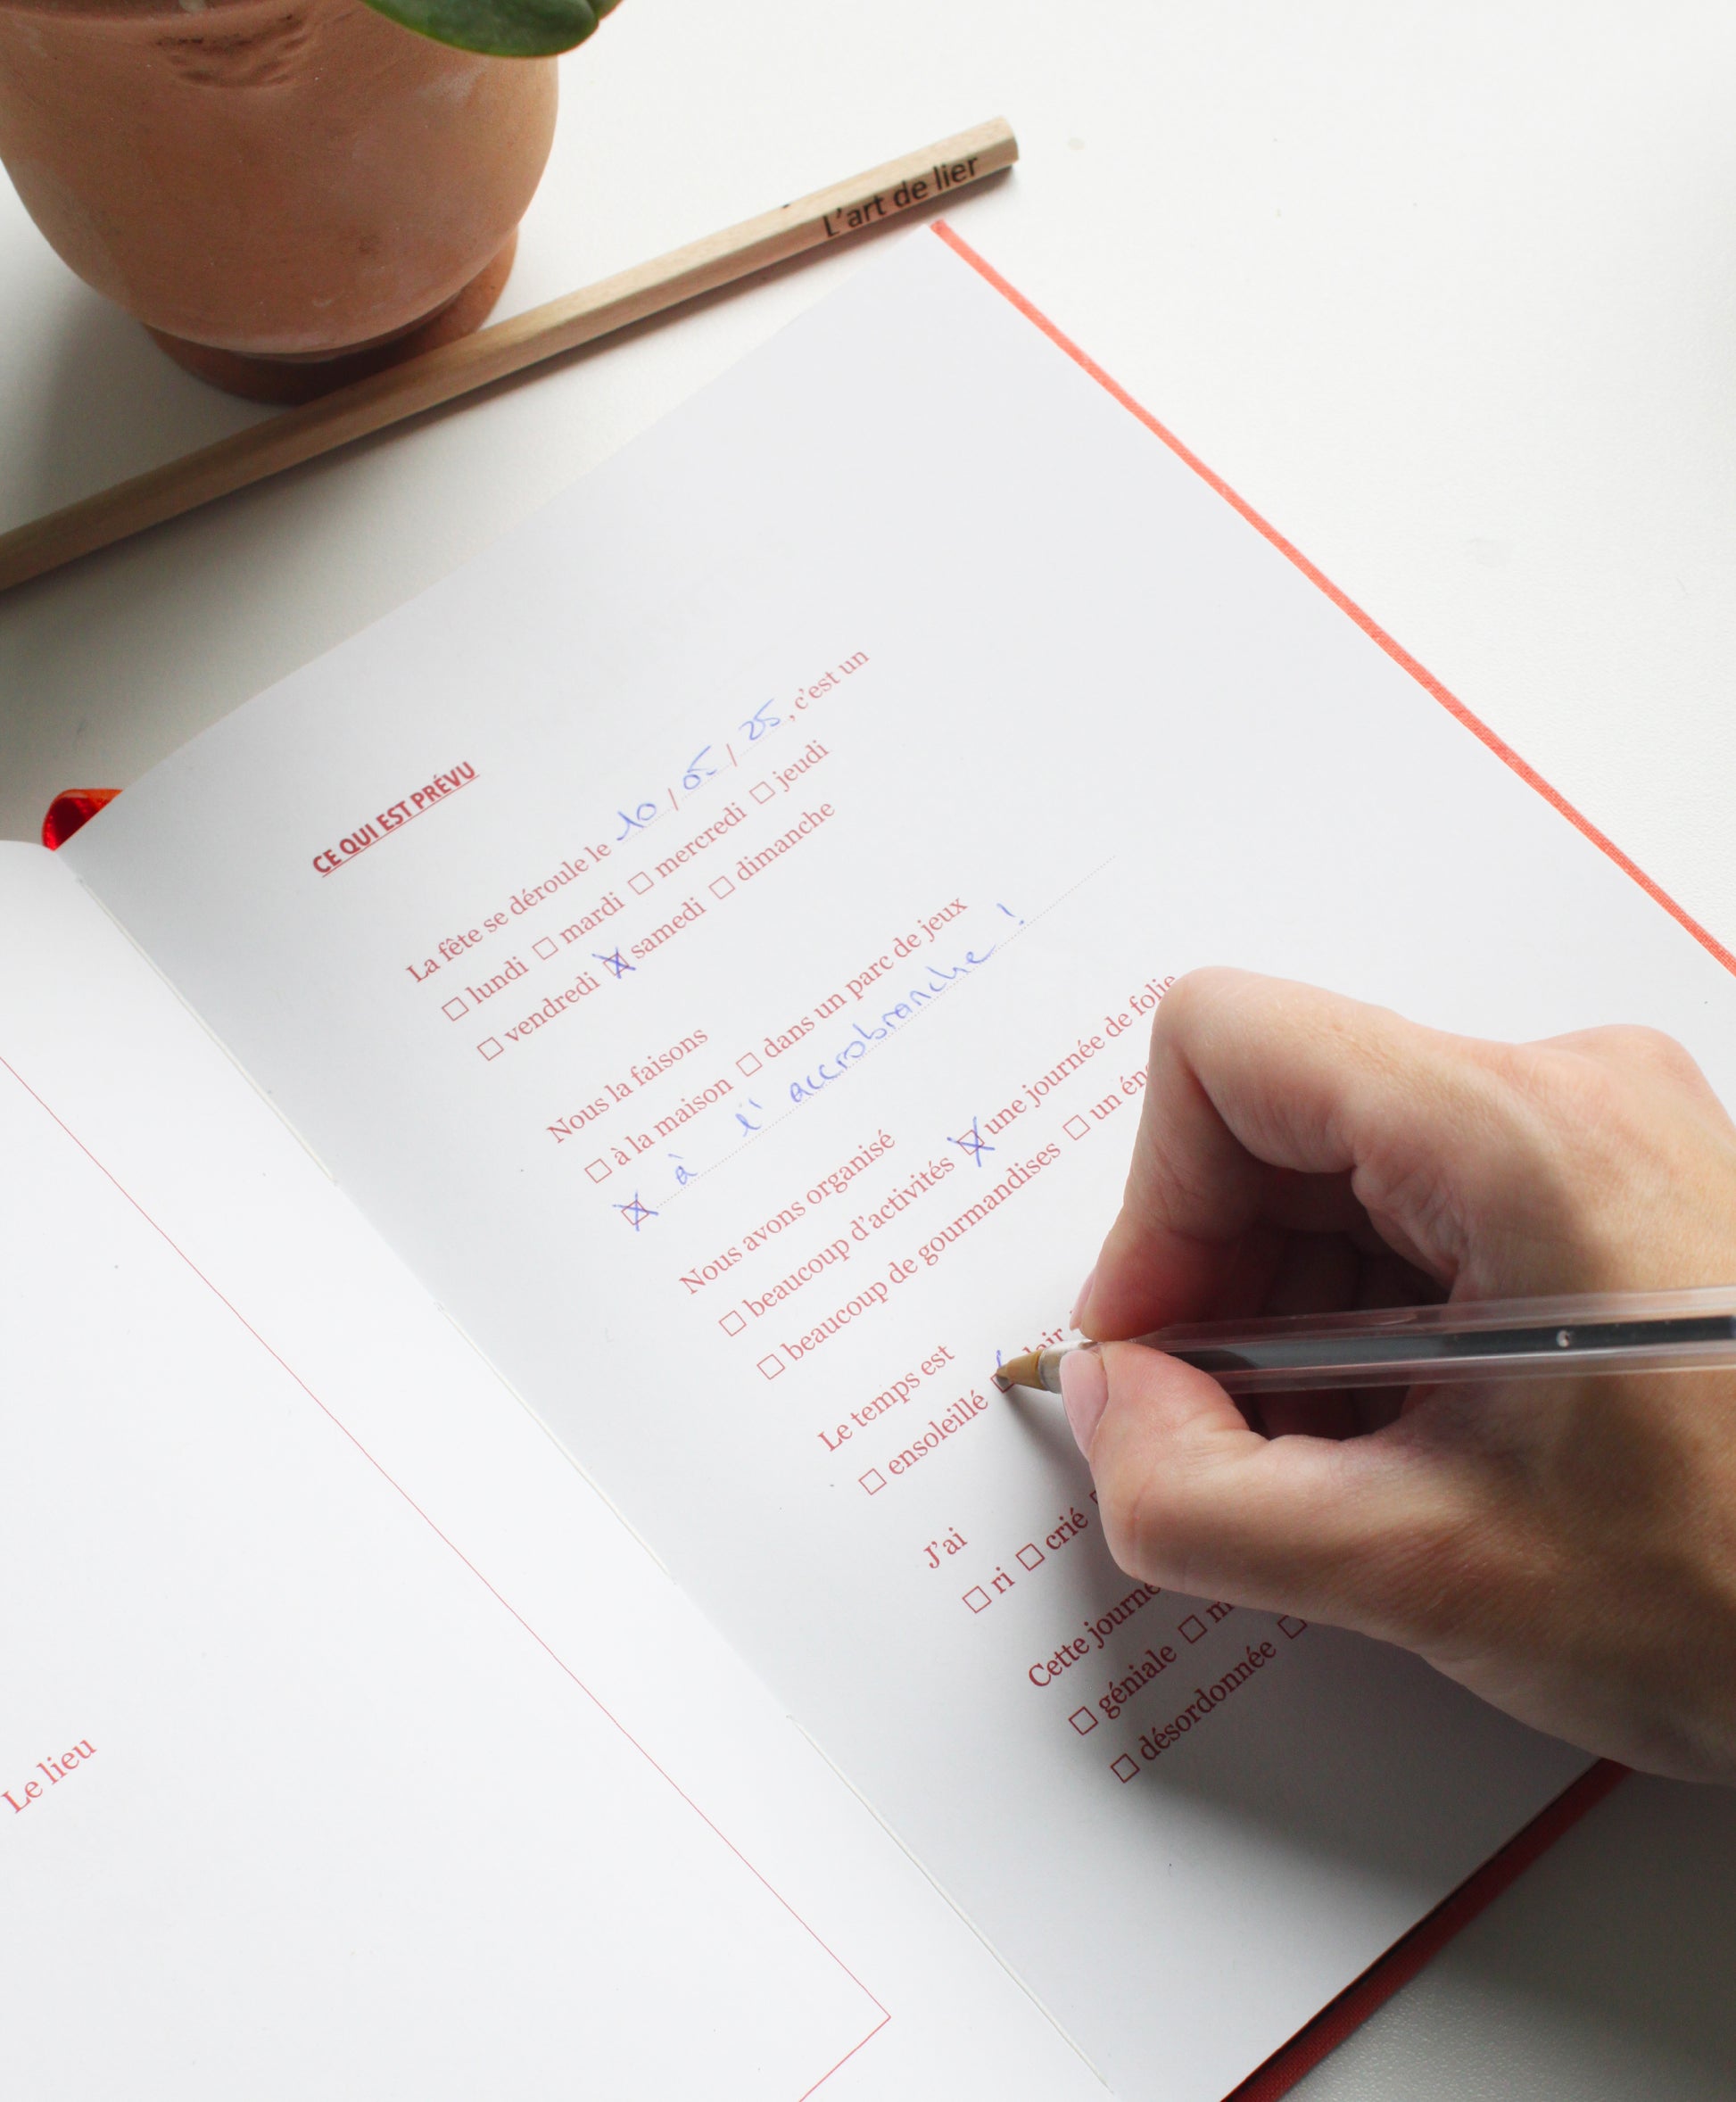 L'art de lier
CE QUI EST PRÉVU
La fête se déroule le 10 / 05 / 25, c'est un
☐ lundi ☐ mardi ☐ mercredi ☐ jeudi
☐ vendredi ☒ samedi ☐ dimanche
Nous la faisons
☐ à la maison ☐ dans un parc de jeux
☒ à l'accrobranche !
Nous avons organisé
☐ beaucoup d'activités ☒ une journée de folie
☐ beaucoup de gourmandises ☐ un
Le temps est
☐ ensoleillé
J'ai
☐ ri ☐ crié
Cette
☐ géniale ☐
☐ désordonnée ☐
Le lieu